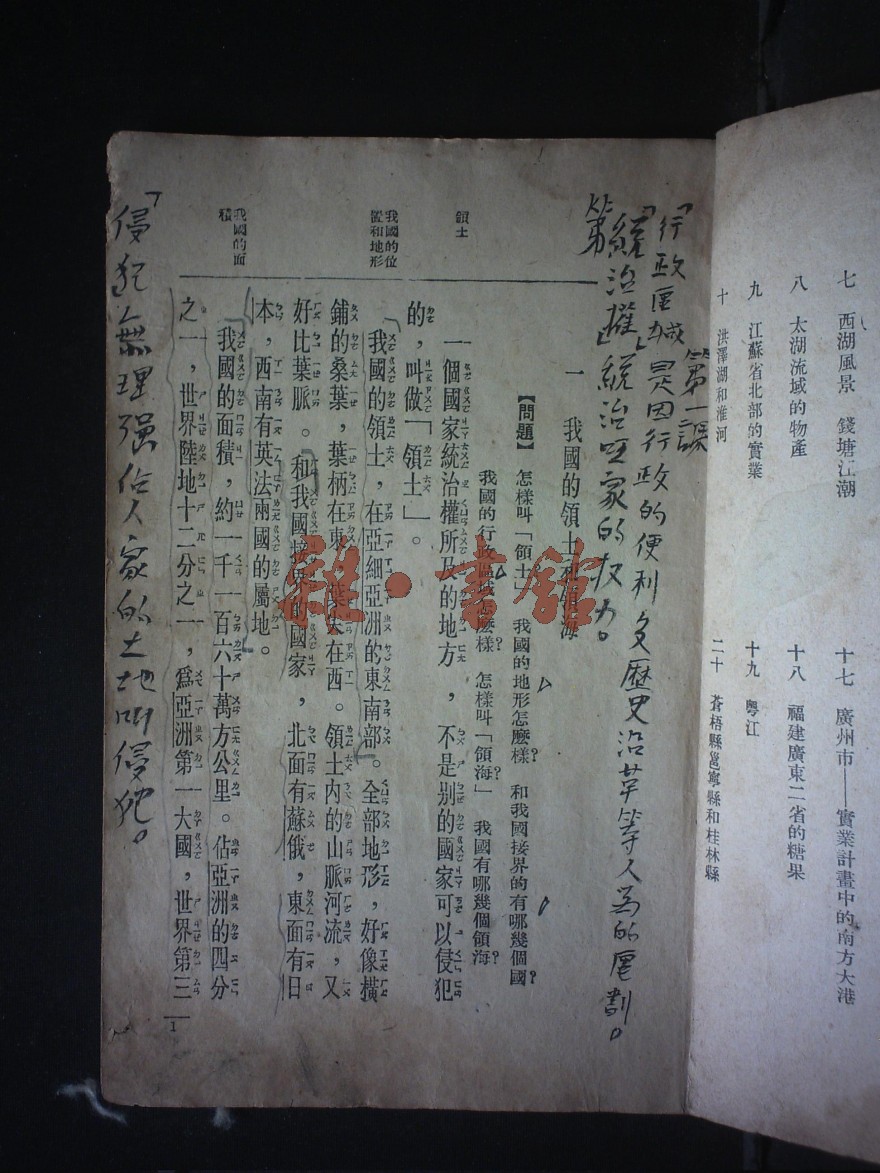 七　西湖風景　錢塘江潮
八　太湖流域的物產
九　江蘇省北部的實業
十　洪澤湖和淮河
十七　廣州市——實業計畫中的南方大港
十八　福建廣東二省的糖果
十九　粵江
二十　蒼梧縣邕寧縣和桂林縣
第一課
「行政區域」是因行政的便利及歷史沿革等人為的區劃。
「統治權」統治国家的权力。
第
一　我國的領土和領海
【問題】　怎樣叫「領土」？　我國的地形怎麼樣？　和我國接界的有哪幾個國？
我國的行政區域怎麼樣？　怎樣叫「領海」？　我國有哪幾個領海？
領土
一個國家統治權所及的地方，不是別的國家可以侵犯
的，叫做「領土」。
我國的位
置和地形
我國的領土，在亞細亞洲的東南部。全部地形，好像橫
鋪的桑葉，葉柄在東，葉尖在西。領土內的山脈河流，又
好比葉脈。和我國接界的國家，北面有蘇俄，東面有日
本，西南有英法兩國的屬地。
我國的面
積
我國的面積，約一千一百六十萬方公里。佔亞洲的四分
之一，世界陸地十二分之一，為亞洲第一大國，世界第三
1
「侵犯」無理强佔人家的土地叫侵犯。
雅·書館